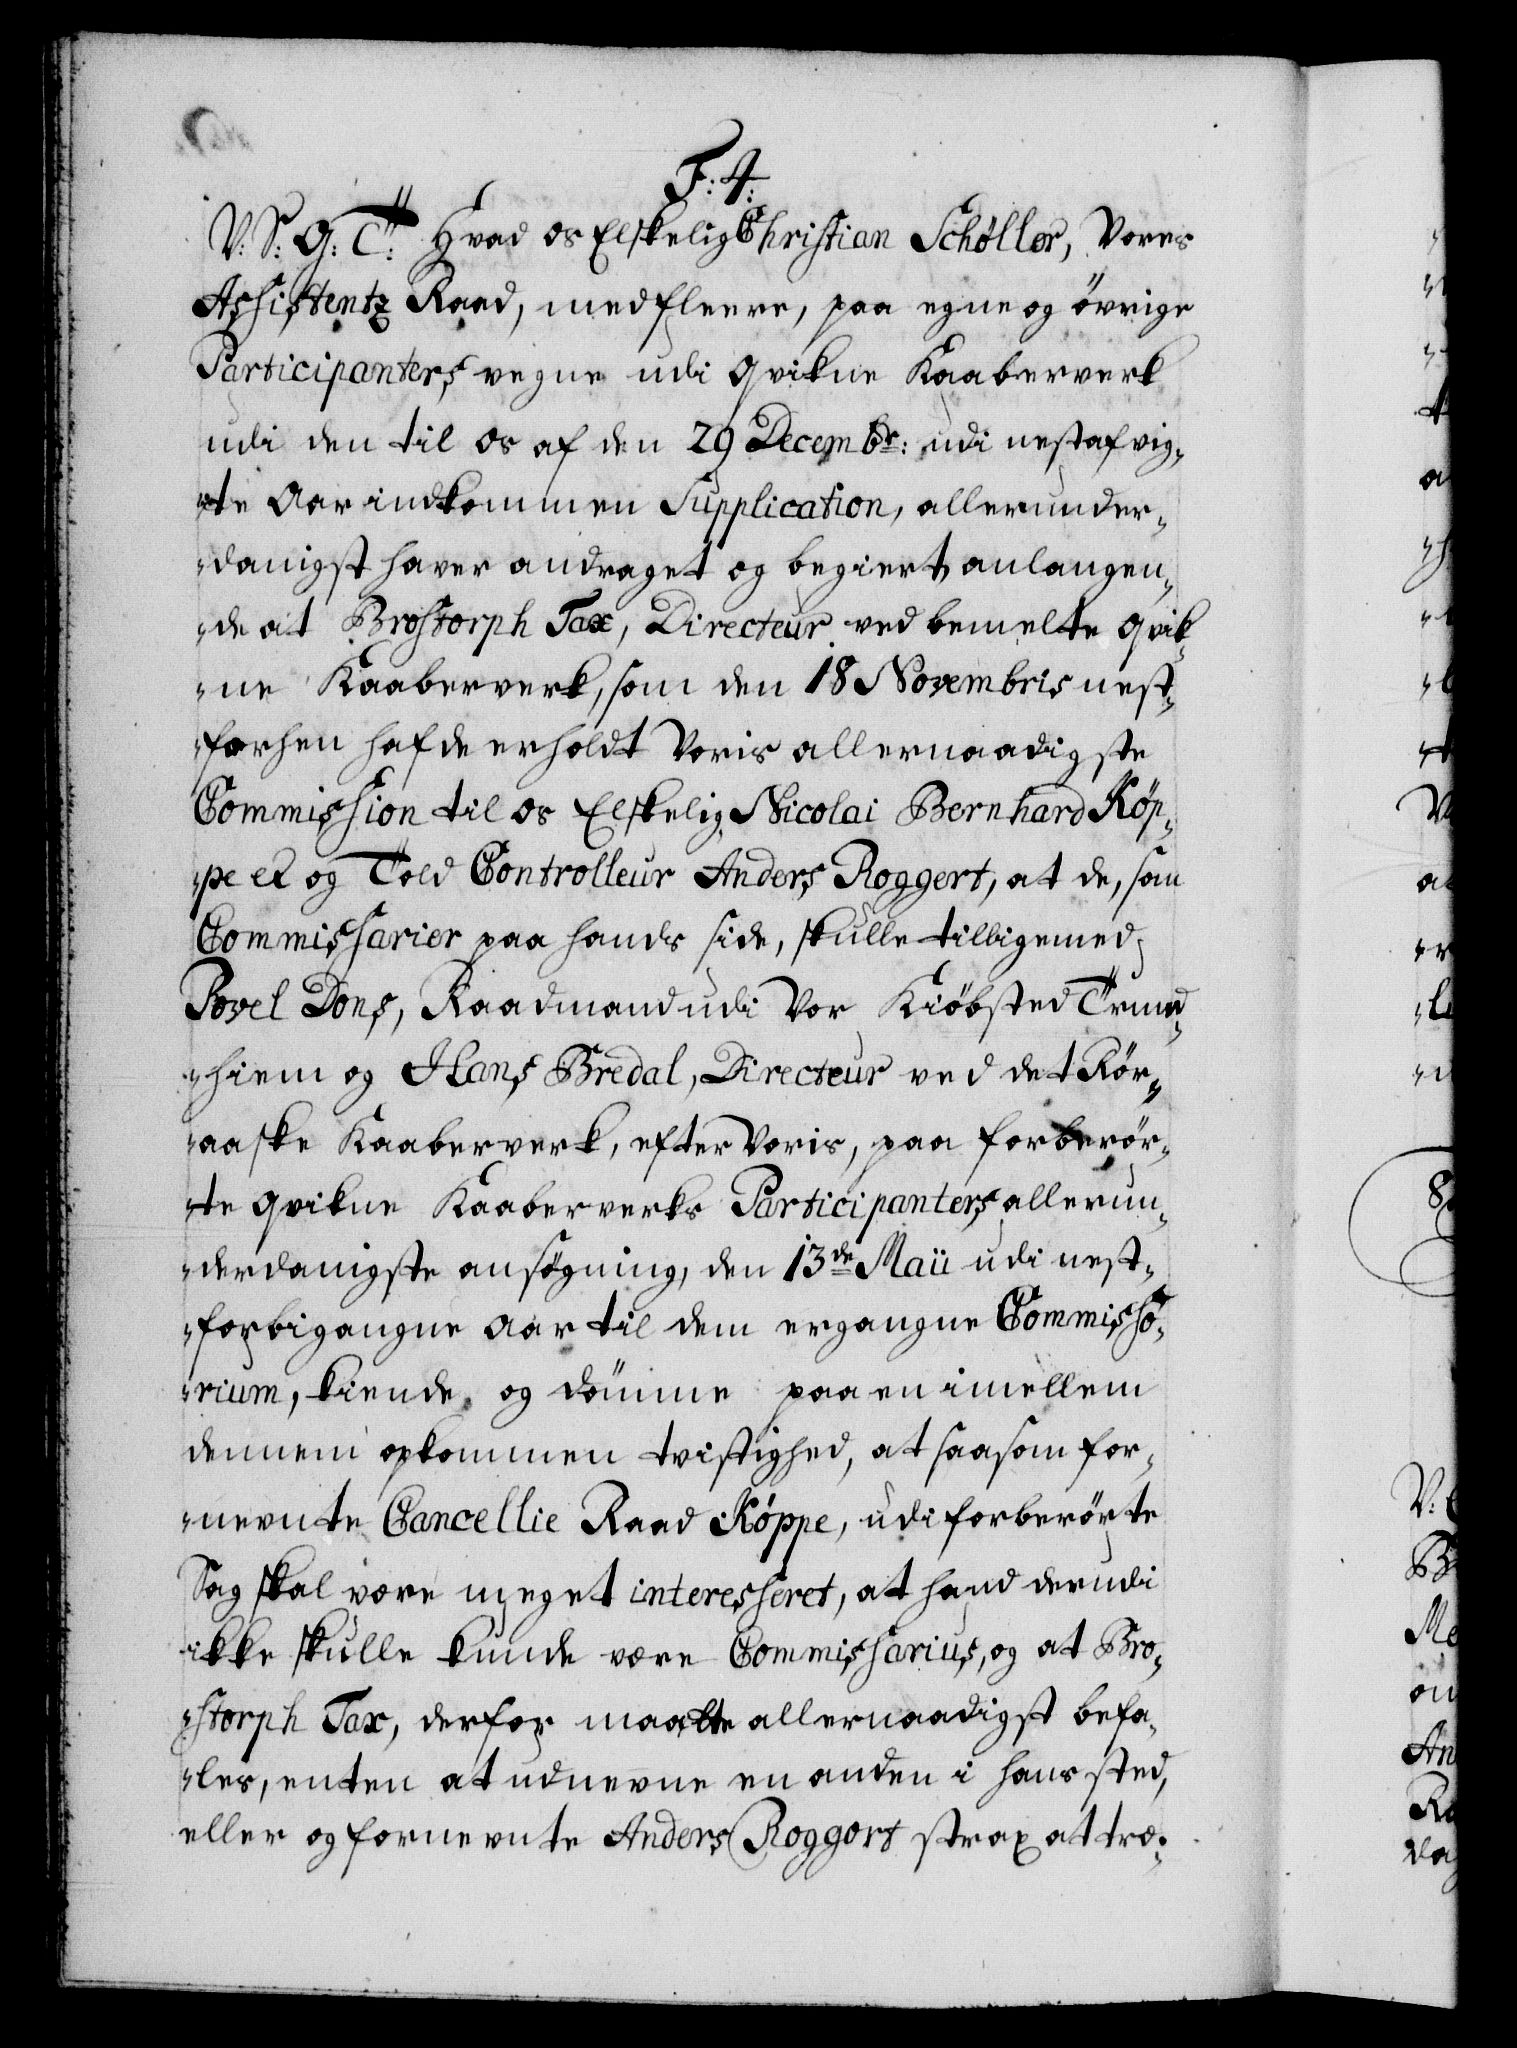 F: 4.
V: S: G: T: Hvad os Elskelig Christian Schøller, Vores
Assistentz Raad, med fleere, paa egne og övrige
Participanters vegne udi Qvikne Kaaberverk
udi den til os af den 29 Decembr: udi nestafvig-
-te Aar indkommen Supplication, allerunder-
-danigst haver andraget og begiert, anlangen-
-de at Brostorph Tax, Directeur ved bemelte Qvik-
-ne Kaaberverk, som den 18 Novembris nest-
-forhen hafde erholdt Voris allernaadigste
Commission til os Elskelig Nicolai Bernhard Køp-
-pe &c og Told Controlleur Anders Roggert, at de, som
Commissarier paa hands side, skulle tilligemed
Povel Dons, Raadmand udi Vor Kiöbsted Trund-
-hiem og Hans Bredal, Directeur ved det Rör-
-aaske Kaaberverk, efter Voris, paa forberör-
-te Qvikne Kaaberverks Participanters allerun-
-derdanigste ansøgning, den 13de Maii udi nest-
-forbigangne Aar til dem ergangne Commisso-
-rium, kiende og dömme paa en imellem
dennem opkommen tvistighed, at saasom for-
-nevnte Cancellie Raad Köppe, udi forberörte
Sag skal være meget interesseret, at hand derudi
ikke skulle kunde være Commissarius, og at Bro-
-storph Tax, derfor maatte allernaadigst befa-
-les, enten at udnevne en anden i hans sted,
eller og fornevnte Anders Roggert strax at træ-